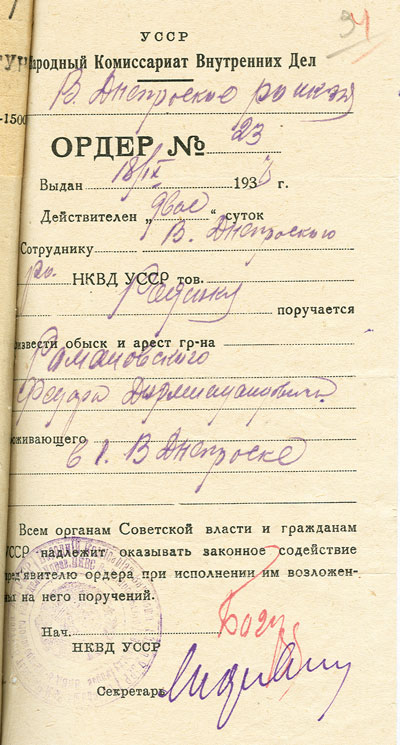 УССР
Народный Комиссариат Внутренних Дел
В. Днепровское
-1500
ОРДЕР № 23
Выдан 18/IX 193 г.
Действителен „двое“ суток
Сотруднику В. Днепровского
ро. НКВД УССР тов.
поручается
оизвести обыск и арест гр-на
Романовского
Федора
оживающего
в г. В Днепровске
Всем органам Советской власти и гражданам
УССР надлежит оказывать законное содействие
пред‘явителю ордера при исполнении им возложен-
ных на него поручений.
Нач.
НКВД УССР
Секретарь